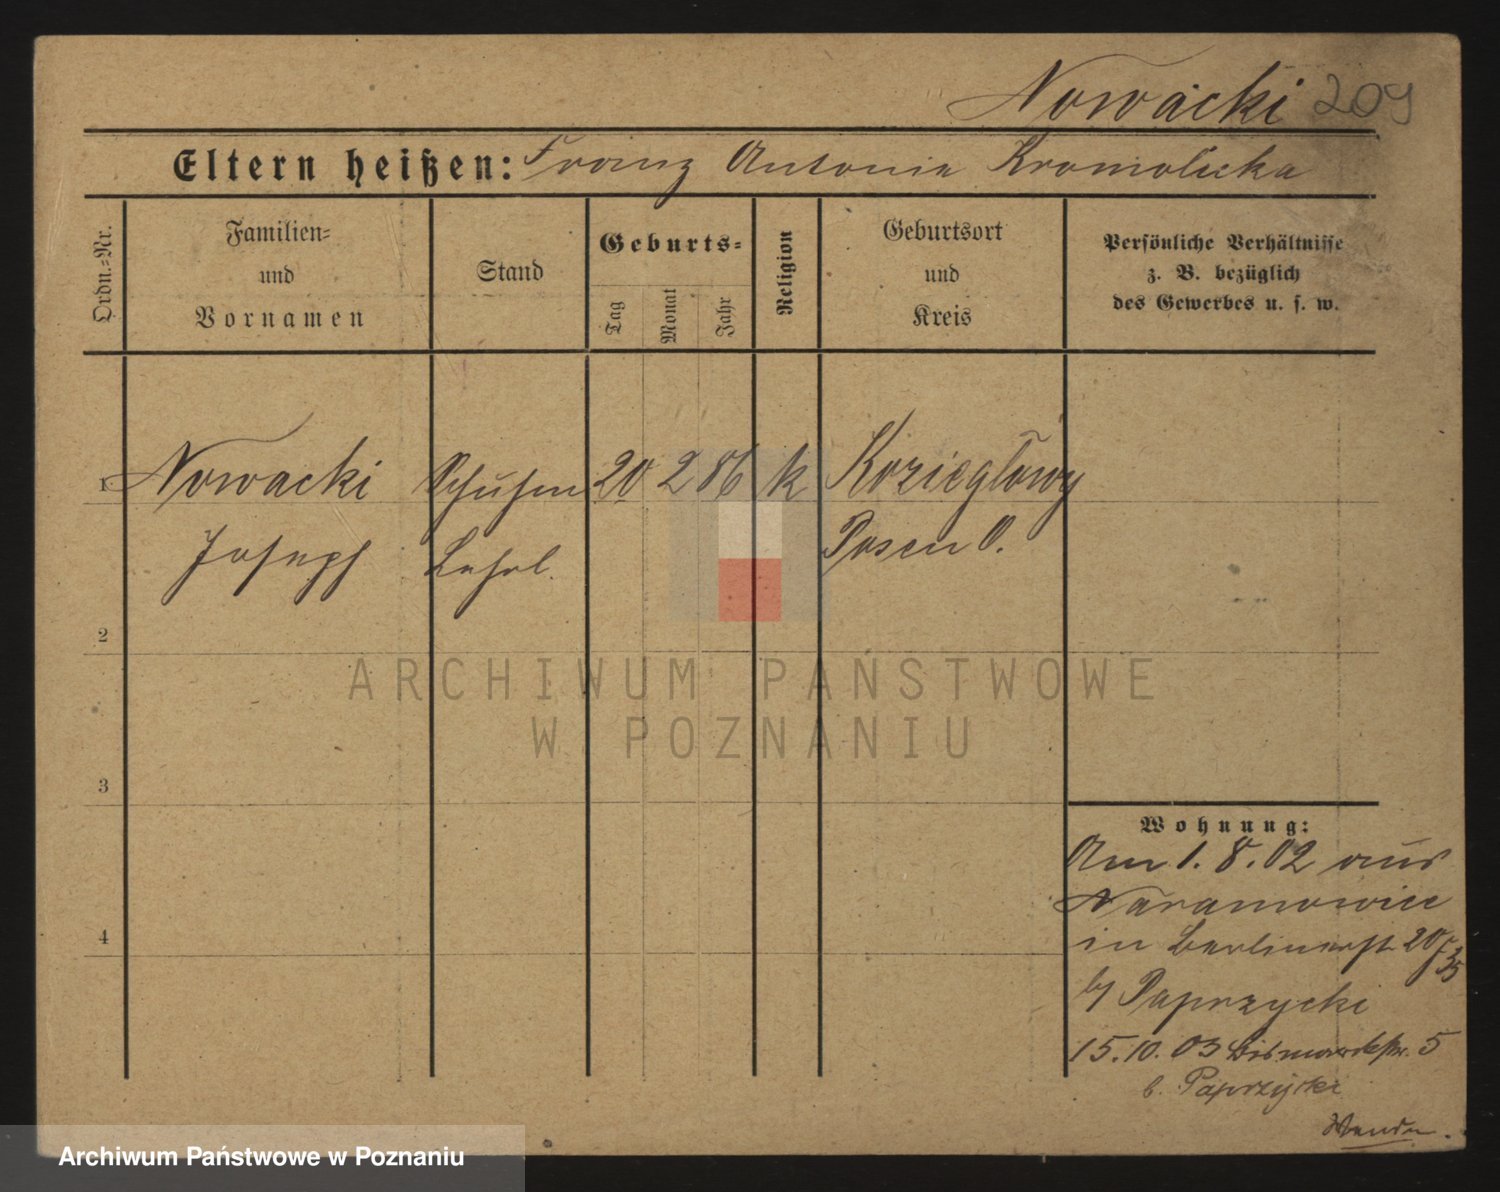 Nowacki 209
Eltern heißen: Franz Antonie Kromolicka
Ordn.=Nr.
Familien=
und
Vornamen
Stand
Geburts=
Tag
Monat
Jahr
Religion
Geburtsort
und
Kreis
Persönliche Verhältnisse
z. B. bezüglich
des Gewerbes u. s. w.
1 Nowacki Schuhm 20 2 86 k Koziegłowy
Joseph Lehrl. Posen O.
2
3
4
Wohnung:
Am 1.8.02 aus
Naramowice
in Berlinerst 20
b/ Paprzycki
15.10.03 Bismarckstr. 5
b. Paprzycki
Wenden.
ARCHIWUM PAŃSTWOWE
W POZNANIU
Archiwum Państwowe w Poznaniu